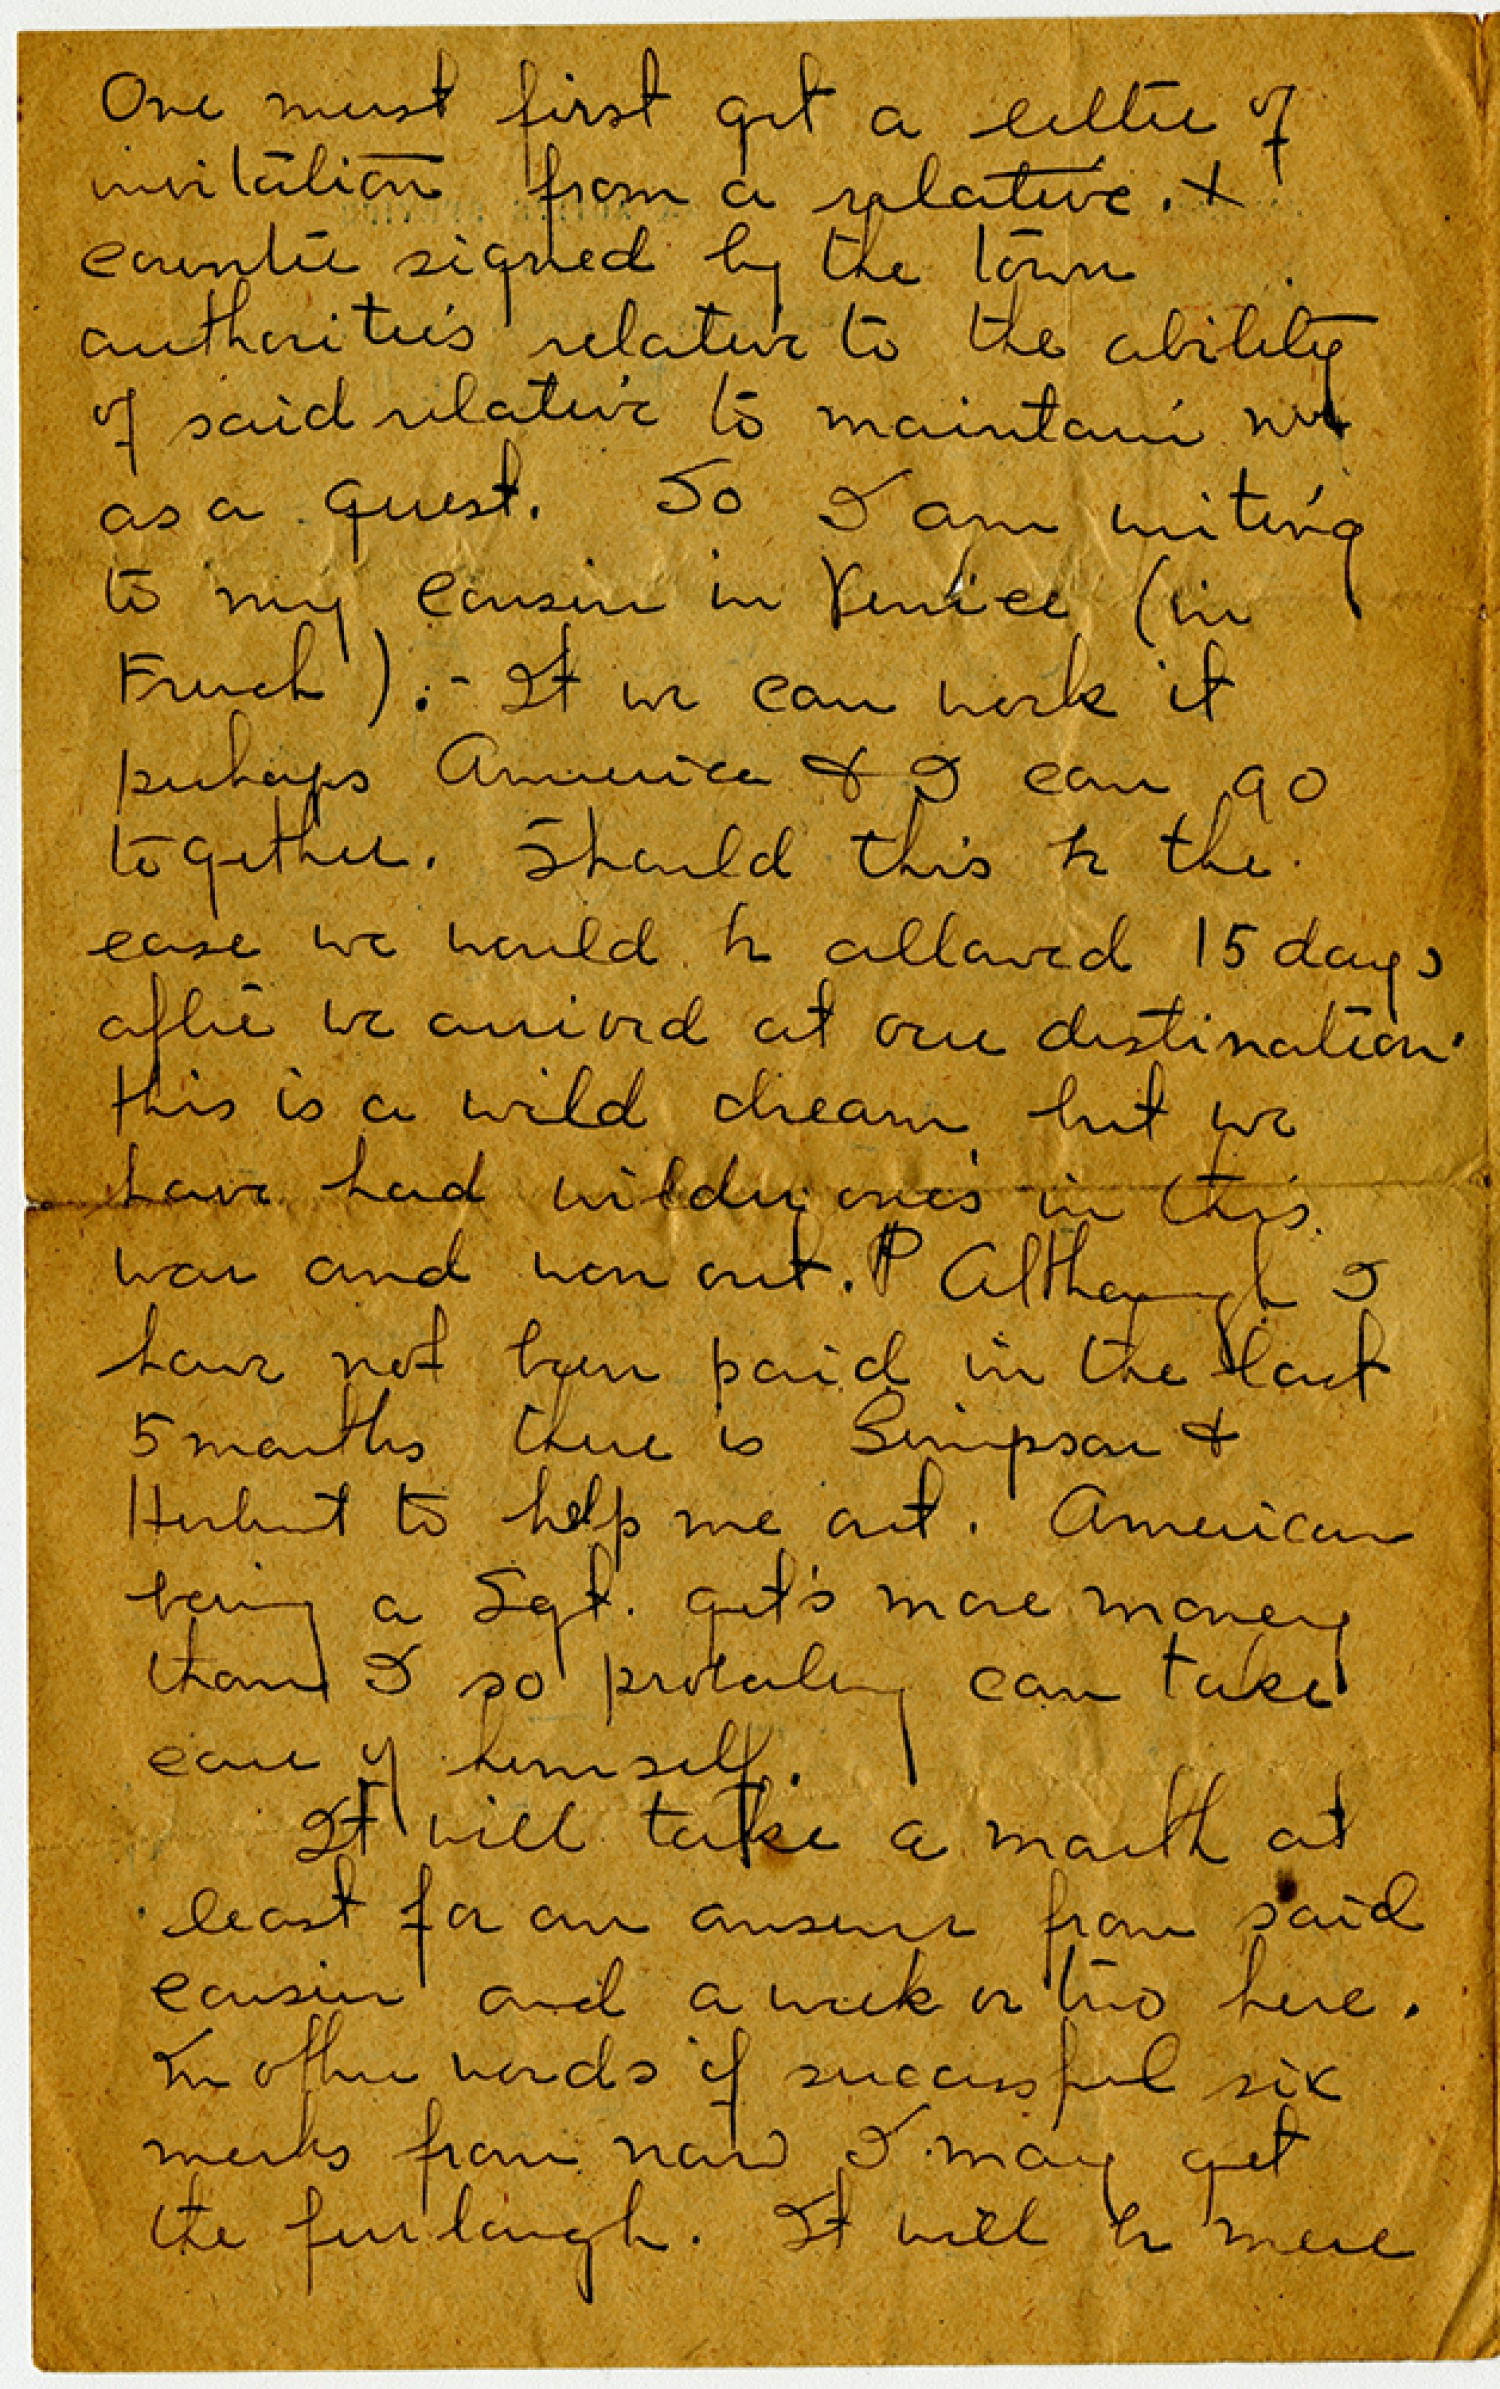 One must first get a letter of
invitation from a relative. &
counter signed by the town
authorities relative to the ability
of said relative to maintain me
as a guest. So I am writing
to my cousin in Venice (in
French).- If we can work it
perhaps America & I can go
together. Should this be the
case we would be allowed 15 days
after we arrived at our destination.
this is a wild dream but we
have had wilder ones in this
war and won out. ¶ Although I
have not been paid in the last
5 months there is Simpson &
Herbert to help me out. American
being a Sgt. get's more money
than I so probably can take
care of himself.
It will take a month at
least for an answer from said
cousin and a week or two here.
In other words if successful six
weeks from now I may get
the furlough. It will be mere